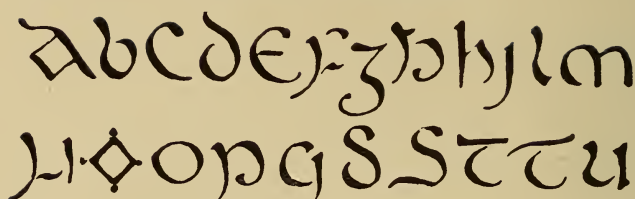 abcdefzhhjlm
noopqsSttu